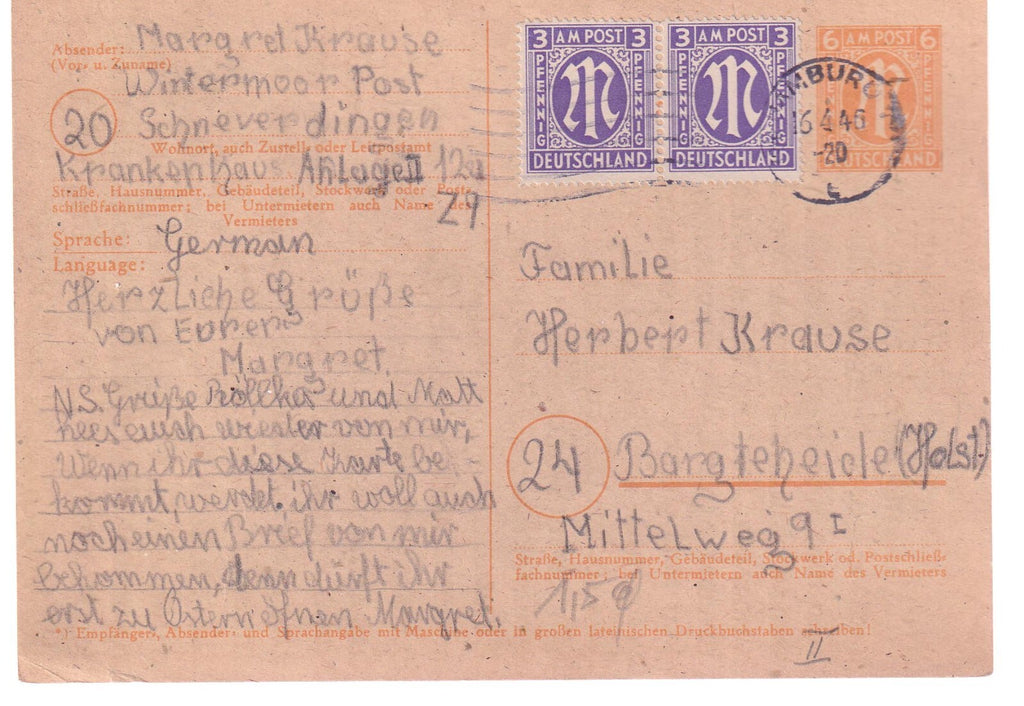 Absender: Margret Krause
(Vor- u. Zuname)
Wintermoor Post
20 Schneverdingen
Wohnort, auch Zustell- oder Leitpostamt
Krankenhaus Anlage II 12a
Straße, Hausnummer, Gebäudeteil, Stockwerk oder Post-
schließfachnummer; bei Untermietern auch Name des
Vermieters
29
Sprache: German
Language:
Herzliche Grüße
von Eurer
Margret.
N.S. Grüße Röllka und Matt
hees euch wieder von mir,
Wenn ihr diese Karte be-
kommt, werdet ihr woll auch
noch einen Brief von mir
bekommen, denn dürft ihr
erst zu Ostern öfnen. Margret.
3 AM POST 3
PFENNIG PFENNIG
DEUTSCHLAND
3 AM POST 3
PFENNIG PFENNIG
DEUTSCHLAND
6 AM POST 6
PFENNIG PFENNIG
DEUTSCHLAND
MBURG
16.4.46
-20
Familie
Herbert Krause
24 Bargteheide (Holst.)
Mittelweg 9 I
Straße, Hausnummer, Gebäudeteil, Stockwerk od. Postschließ-
fachnummer; bei Untermietern auch Name des Vermieters
II
*) Empfänger, Absender- und Sprachangabe mit Maschine oder in großen lateinischen Druckbuchstaben schreiben!